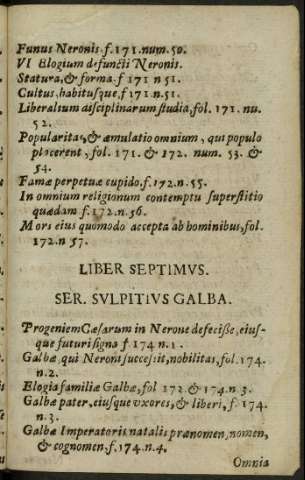 Funus Neronis. f. 171. num. 50.
VI Elogium defuncti Neronis.
Statura, & forma. f 171 n 51.
Cultus, habitusque, f 171. n. 51.
Liberalium disciplinarum studia, fol. 171. nu.
52.
Popularitas, & æmulatio omnium, qui populo
placerent, fol. 171. & 172. num. 53. &
54.
Famæ perpetuæ cupido, f. 172. n. 55.
In omnium religionum contemptu superstitio
quædam f. 172. n. 56.
Mors eius quomodo accepta ab hominibus, fol.
172. n 57.
LIBER SEPTIMVS.
SER. SVLPITIVS GALBA.
Progeniem Cæsarum in Nerone defecisse, eius-
que futuri signa f 174 n. 1.
Galbæ, qui Neroni successit, nobilitas, fol. 174.
n. 2.
Elogia familiæ Galbæ, fol 173 & 174. n 3.
Galbæ pater, eiusque vxores, & liberi, f. 174.
n. 3.
Galbæ Imperatoris natalis prænomen, nomen,
& cognomen, f. 174. n. 4.
Omnia